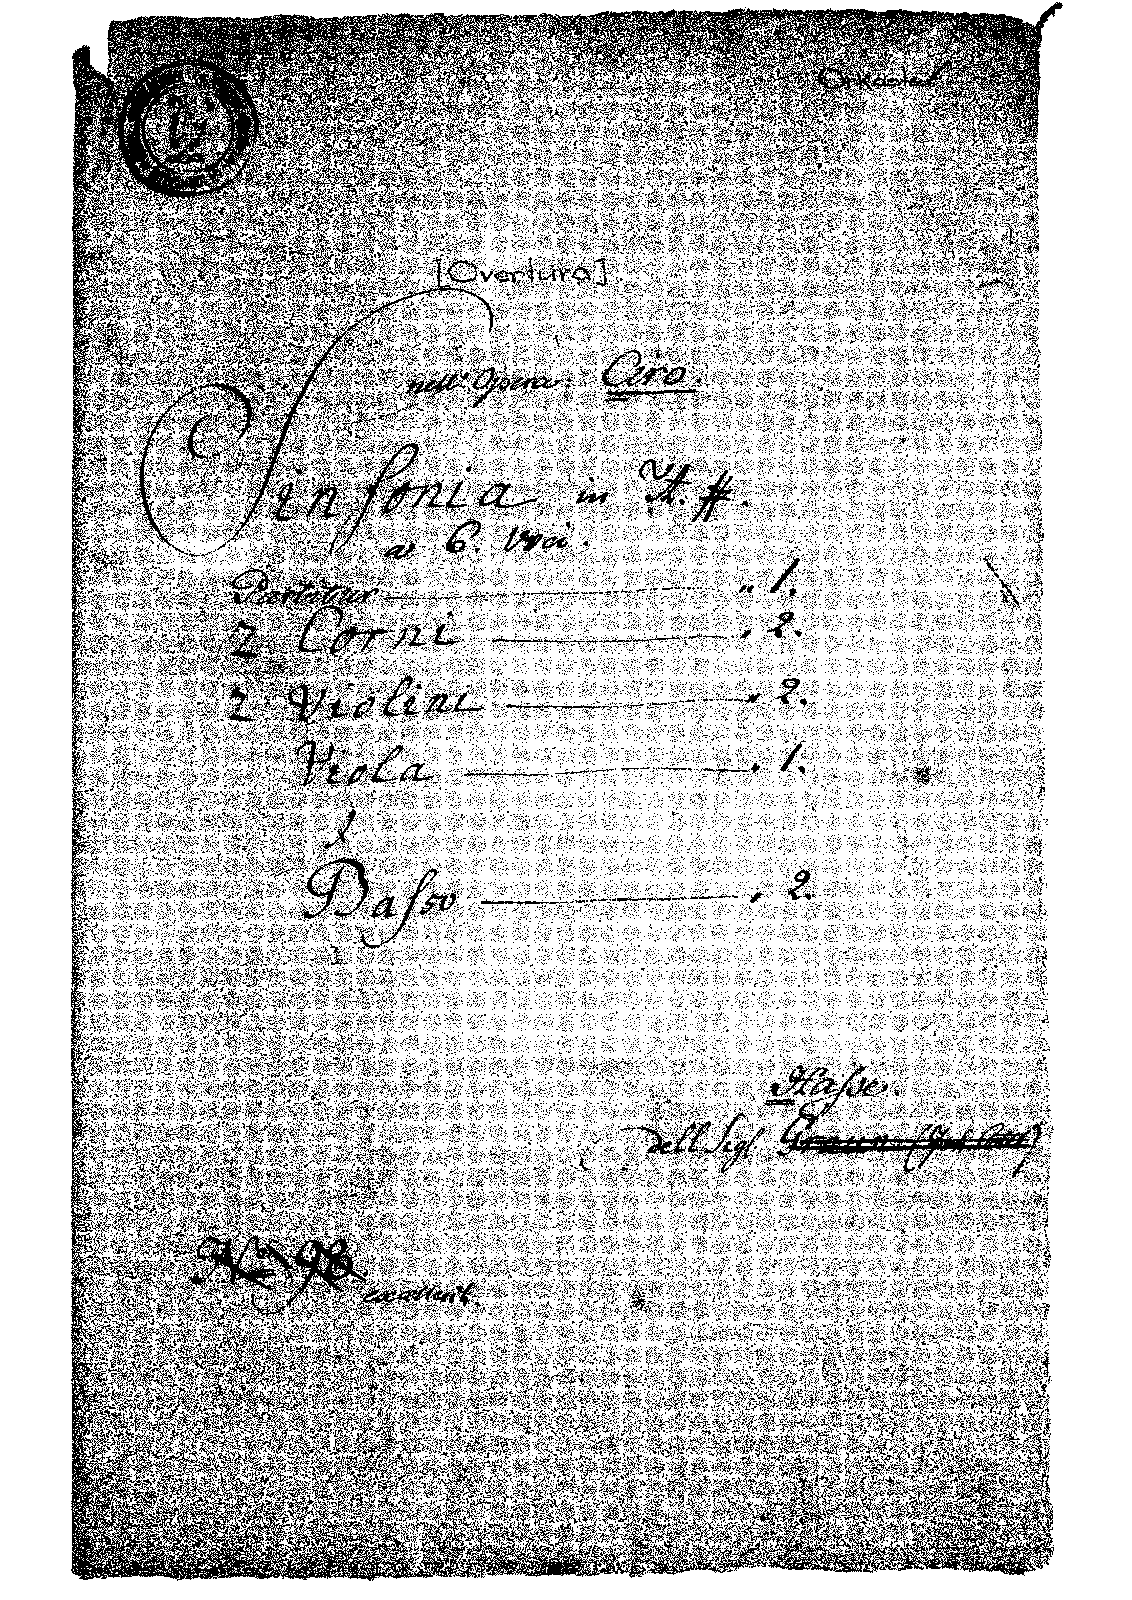 [Overtura]
nell' Opera: Ciro.
Sinfonia in A. #.
a 6. Voci.
Partitur " 1.
2 Corni " 2.
2 Violini " 2.
Viola " 1.
&
Basso " 2.
Hasse.
dell Sigl. Graun
No 98